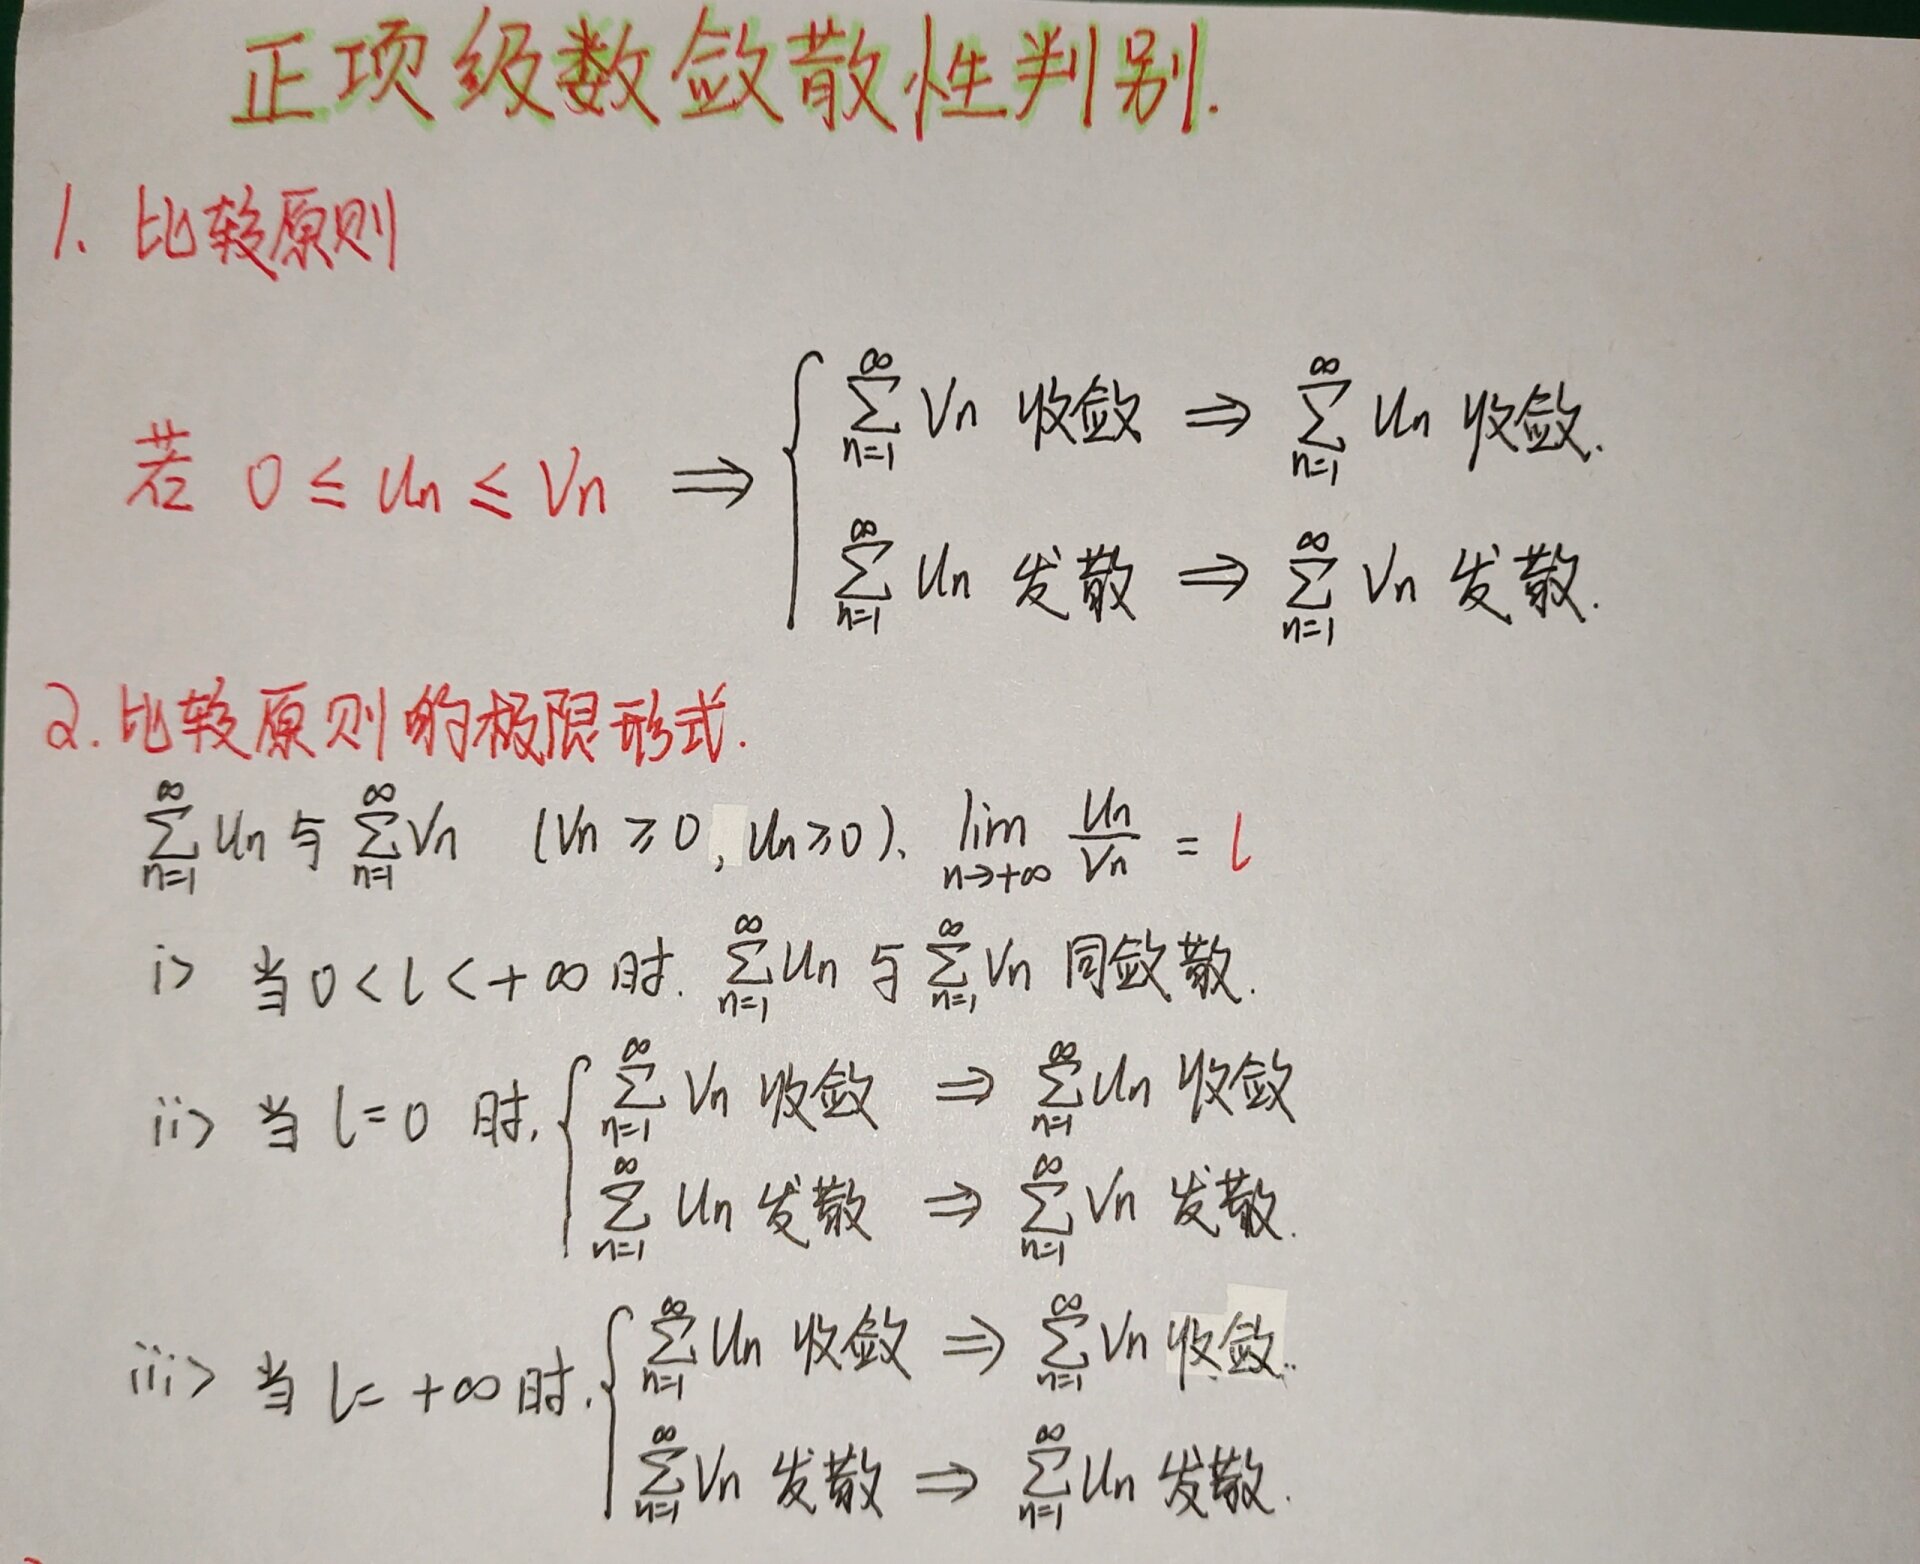 正项级数敛散性判别.
1. 比较原则
若 0 ≤ Un ≤ Vn ⇒ { ∑_{n=1}^{∞} Vn 收敛 ⇒ ∑_{n=1}^{∞} Un 收敛.
∑_{n=1}^{∞} Un 发散 ⇒ ∑_{n=1}^{∞} Vn 发散.
2. 比较原则的极限形式.
∑_{n=1}^{∞} Un 与 ∑_{n=1}^{∞} Vn (Vn ≥ 0, Un ≥ 0). lim_{n→+∞} Un/Vn = l
i> 当 0 < l < +∞ 时. ∑_{n=1}^{∞} Un 与 ∑_{n=1}^{∞} Vn 同敛散.
ii> 当 l = 0 时, { ∑_{n=1}^{∞} Vn 收敛 ⇒ ∑_{n=1}^{∞} Un 收敛
∑_{n=1}^{∞} Un 发散 ⇒ ∑_{n=1}^{∞} Vn 发散.
iii> 当 l = +∞ 时. { ∑_{n=1}^{∞} Un 收敛 ⇒ ∑_{n=1}^{∞} Vn 收敛..
∑_{n=1}^{∞} Vn 发散 ⇒ ∑_{n=1}^{∞} Un 发散.